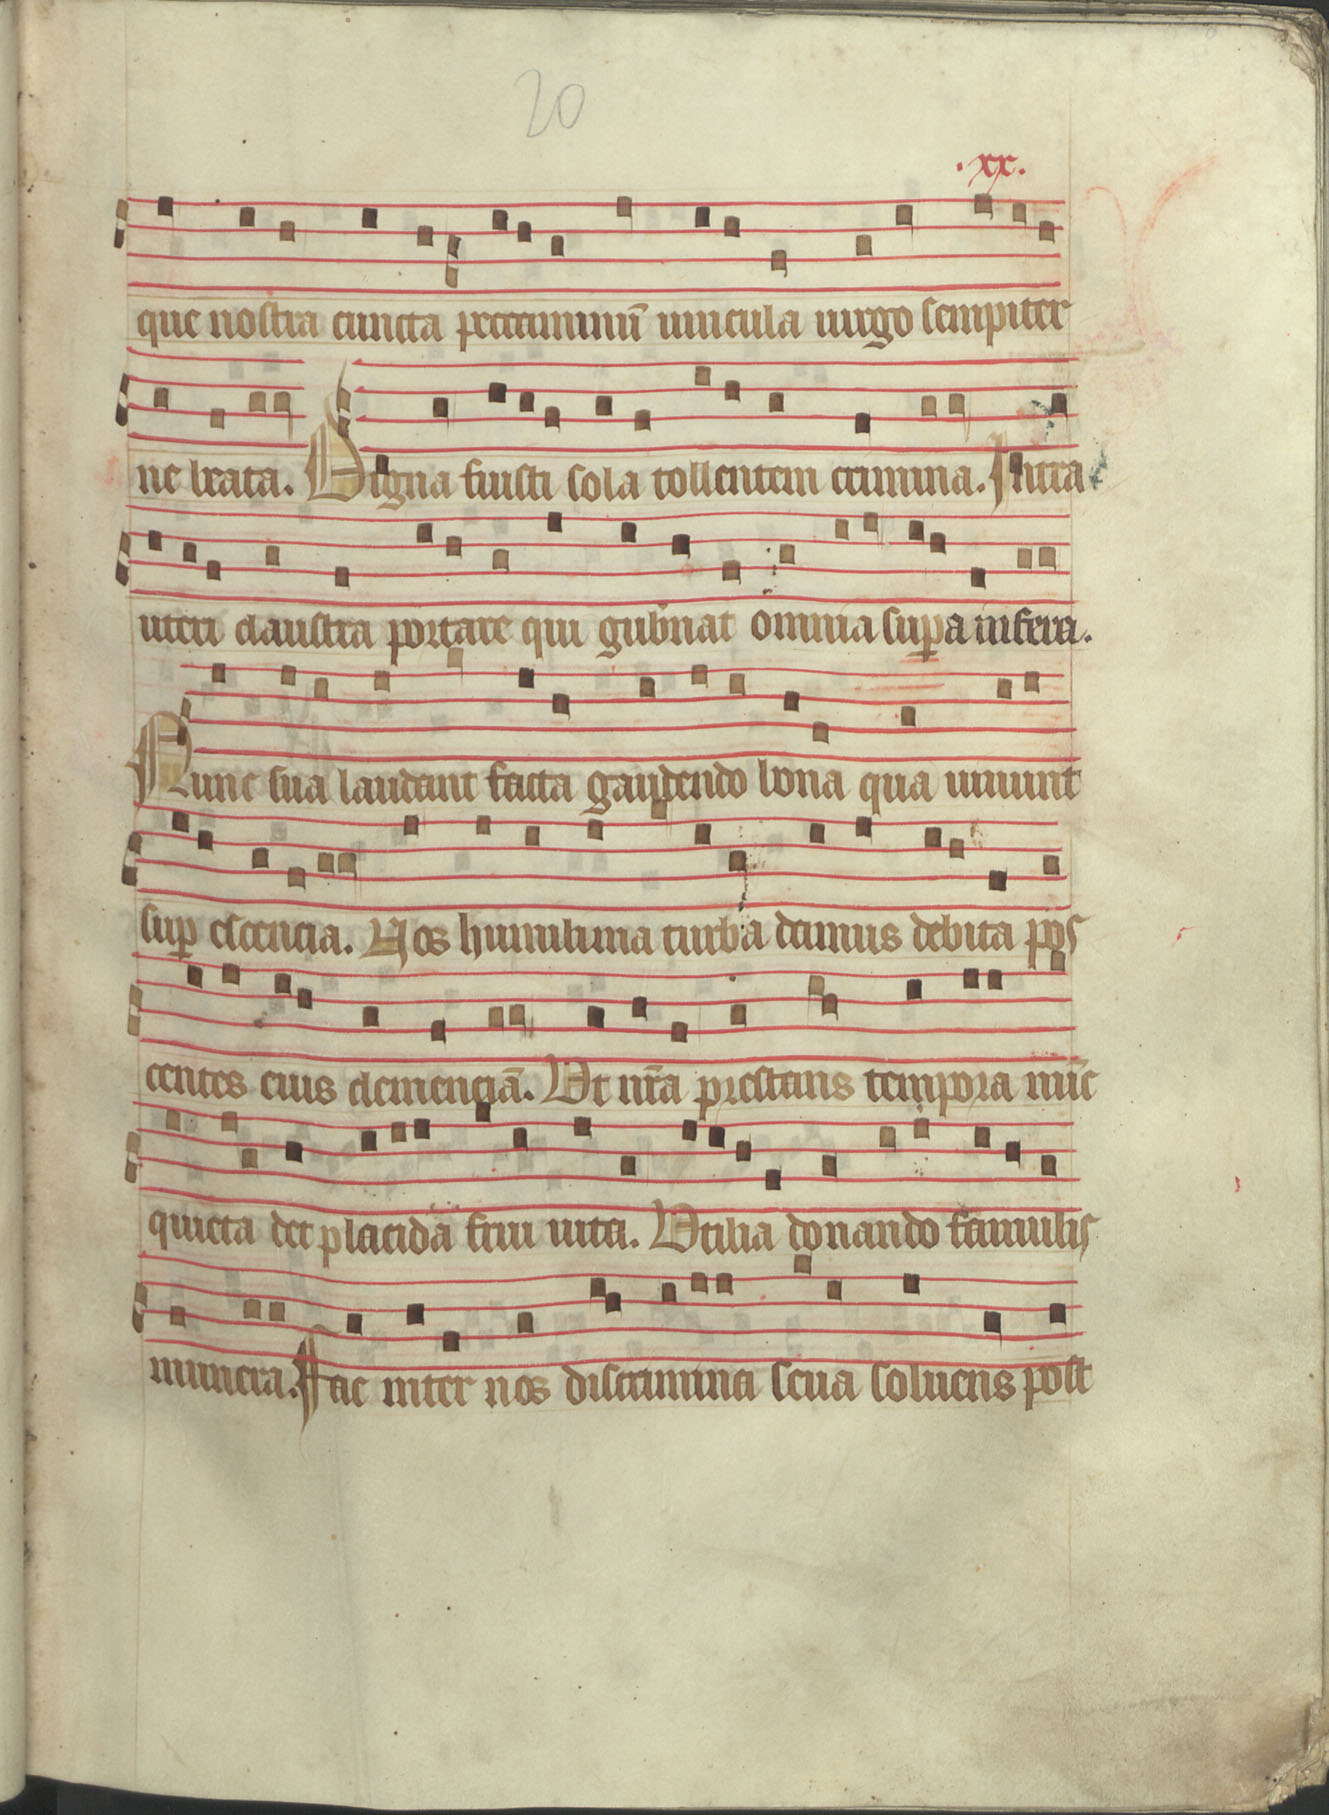 20
.xx.
que nostra cuncta peccaminum̄ uincula uirgo sempiter
ne beata. Digna fuisti sola tollentem crimina. Intra
uteri claustra portare qui gub̄nat omnia sup̄a infera.
Nunc sua laudant facta gaudendo bona qua uiuunt
sup̄ celencia. Hos humilima turba demus debita pos
centes eius clemenciā. Et nr̄a prestans tempora nūc
quieta det placida frui uita. Utilia donando famulis
munera. Fac inter nos discrimina seua soluens post